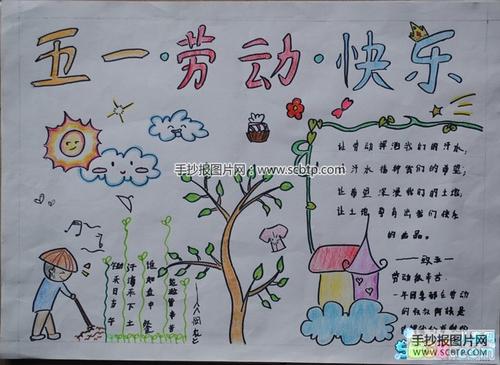 五一·劳动·快乐
手抄报图片网:www.scbtp.com
让劳动挥洒我们的汗水，
让汗水播种我们的希望；
让希望深浸我们的土地，
让土地孕育出我们快乐
的出品。
劳动很辛苦。
一年四季都在劳动
的叔叔阿姨是
锄禾日当午
汗滴禾下土
谁知盘中餐
粒粒皆辛苦
——《悯农》
手抄报图片网
WWW.SCBTP.COM